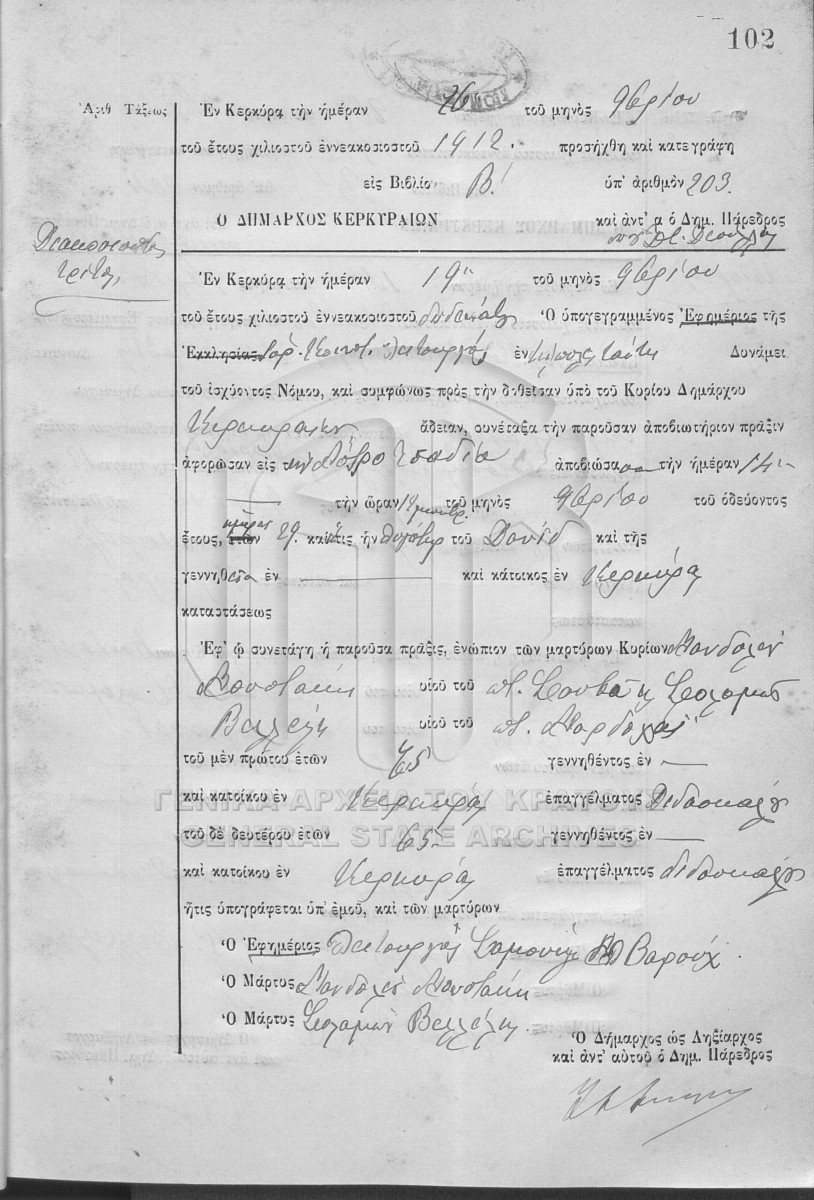 102
Ἀριθ Τάξεως
Ἐν Κερκύρα τὴν ἡμέραν 26 τοῦ μηνὸς 9βρίου
τοῦ ἔτους χιλιοστοῦ ἐννεακοσιοστοῦ 1912. προσήχθη καὶ κατεγράφη
εἰς Βιβλίον Β! ὑπ' ἀριθμὸν 203.
Ο ΔΗΜΑΡΧΟΣ ΚΕΡΚΥΡΑΙΩΝ καὶ ἀντ' α ὁ Δημ. Πάρεδρος
Διακοσιοστὸς
τρίτος
Ἐν Κερκύρα τὴν ἡμέραν 19 τοῦ μηνὸς 9βρίου
τοῦ ἔτους χιλιοστοῦ ἐννεακοσιοστοῦ δωδεκάτου Ὁ ὑπογεγραμμένος Ἐφημέριος τῆς
Ἐκκλησίας λειτουργὸς ἐν ταύτῃ Δυνάμει
τοῦ ἰσχύοντος Νόμου, καὶ συμφώνως πρὸς τὴν δοθεῖσαν ὑπὸ τοῦ Κυρίου Δημάρχου
Κερκυραίων ἄδειαν, συνέταξα τὴν παροῦσαν ἀποβιωτήριον πρᾶξιν
ἀφορῶσαν εἰς τὴν ἀποβιώσασαν τὴν ἡμέραν 14
τὴν ὥραν τοῦ μηνὸς 9βρίου τοῦ ὁδεύοντος
ἔτους, ἐτῶν ἡμέρας 29. καὶ ἥτις ἦν θυγάτηρ τοῦ Δαυίδ καὶ τῆς
γεννηθεῖσα ἐν καὶ κάτοικος ἐν Κερκύρᾳ
καταστάσεως
Ἐφ' ᾧ συνετάγη ἡ παροῦσα πρᾶξις, ἐνώπιον τῶν μαρτύρων Κυρίων Μανδολὶν
Μουστάκη υἱοῦ τοῦ Σολομὼν
Βελλέλη υἱοῦ τοῦ
τοῦ μὲν πρώτου ἐτῶν 65 γεννηθέντος ἐν
καὶ κατοίκου ἐν Κερκύρᾳ ἐπαγγέλματος Διδασκάλου
τοῦ δὲ δευτέρου ἐτῶν 65 γεννηθέντος ἐν
καὶ κατοίκου ἐν Κερκύρᾳ ἐπαγγέλματος διδασκάλου
ἥτις ὑπογράφεται ὑπ' ἐμοῦ, καὶ τῶν μαρτύρων
Ὁ Ἐφημέριος λειτουργὸς Σαμουὴλ Βαρούχ
Ὁ Μάρτυς Μανδολὶν Μουστάκη
Ὁ Μάρτυς Σολομὼν Βελλέλη
Ὁ Δήμαρχος ὡς Ληξίαρχος
καὶ ἀντ' αὐτοῦ ὁ Δημ. Πάρεδρος
ΓΕΝΙΚΑ ΑΡΧΕΙΑ ΤΟΥ ΚΡΑΤΟΥΣ
GENERAL STATE ARCHIVES